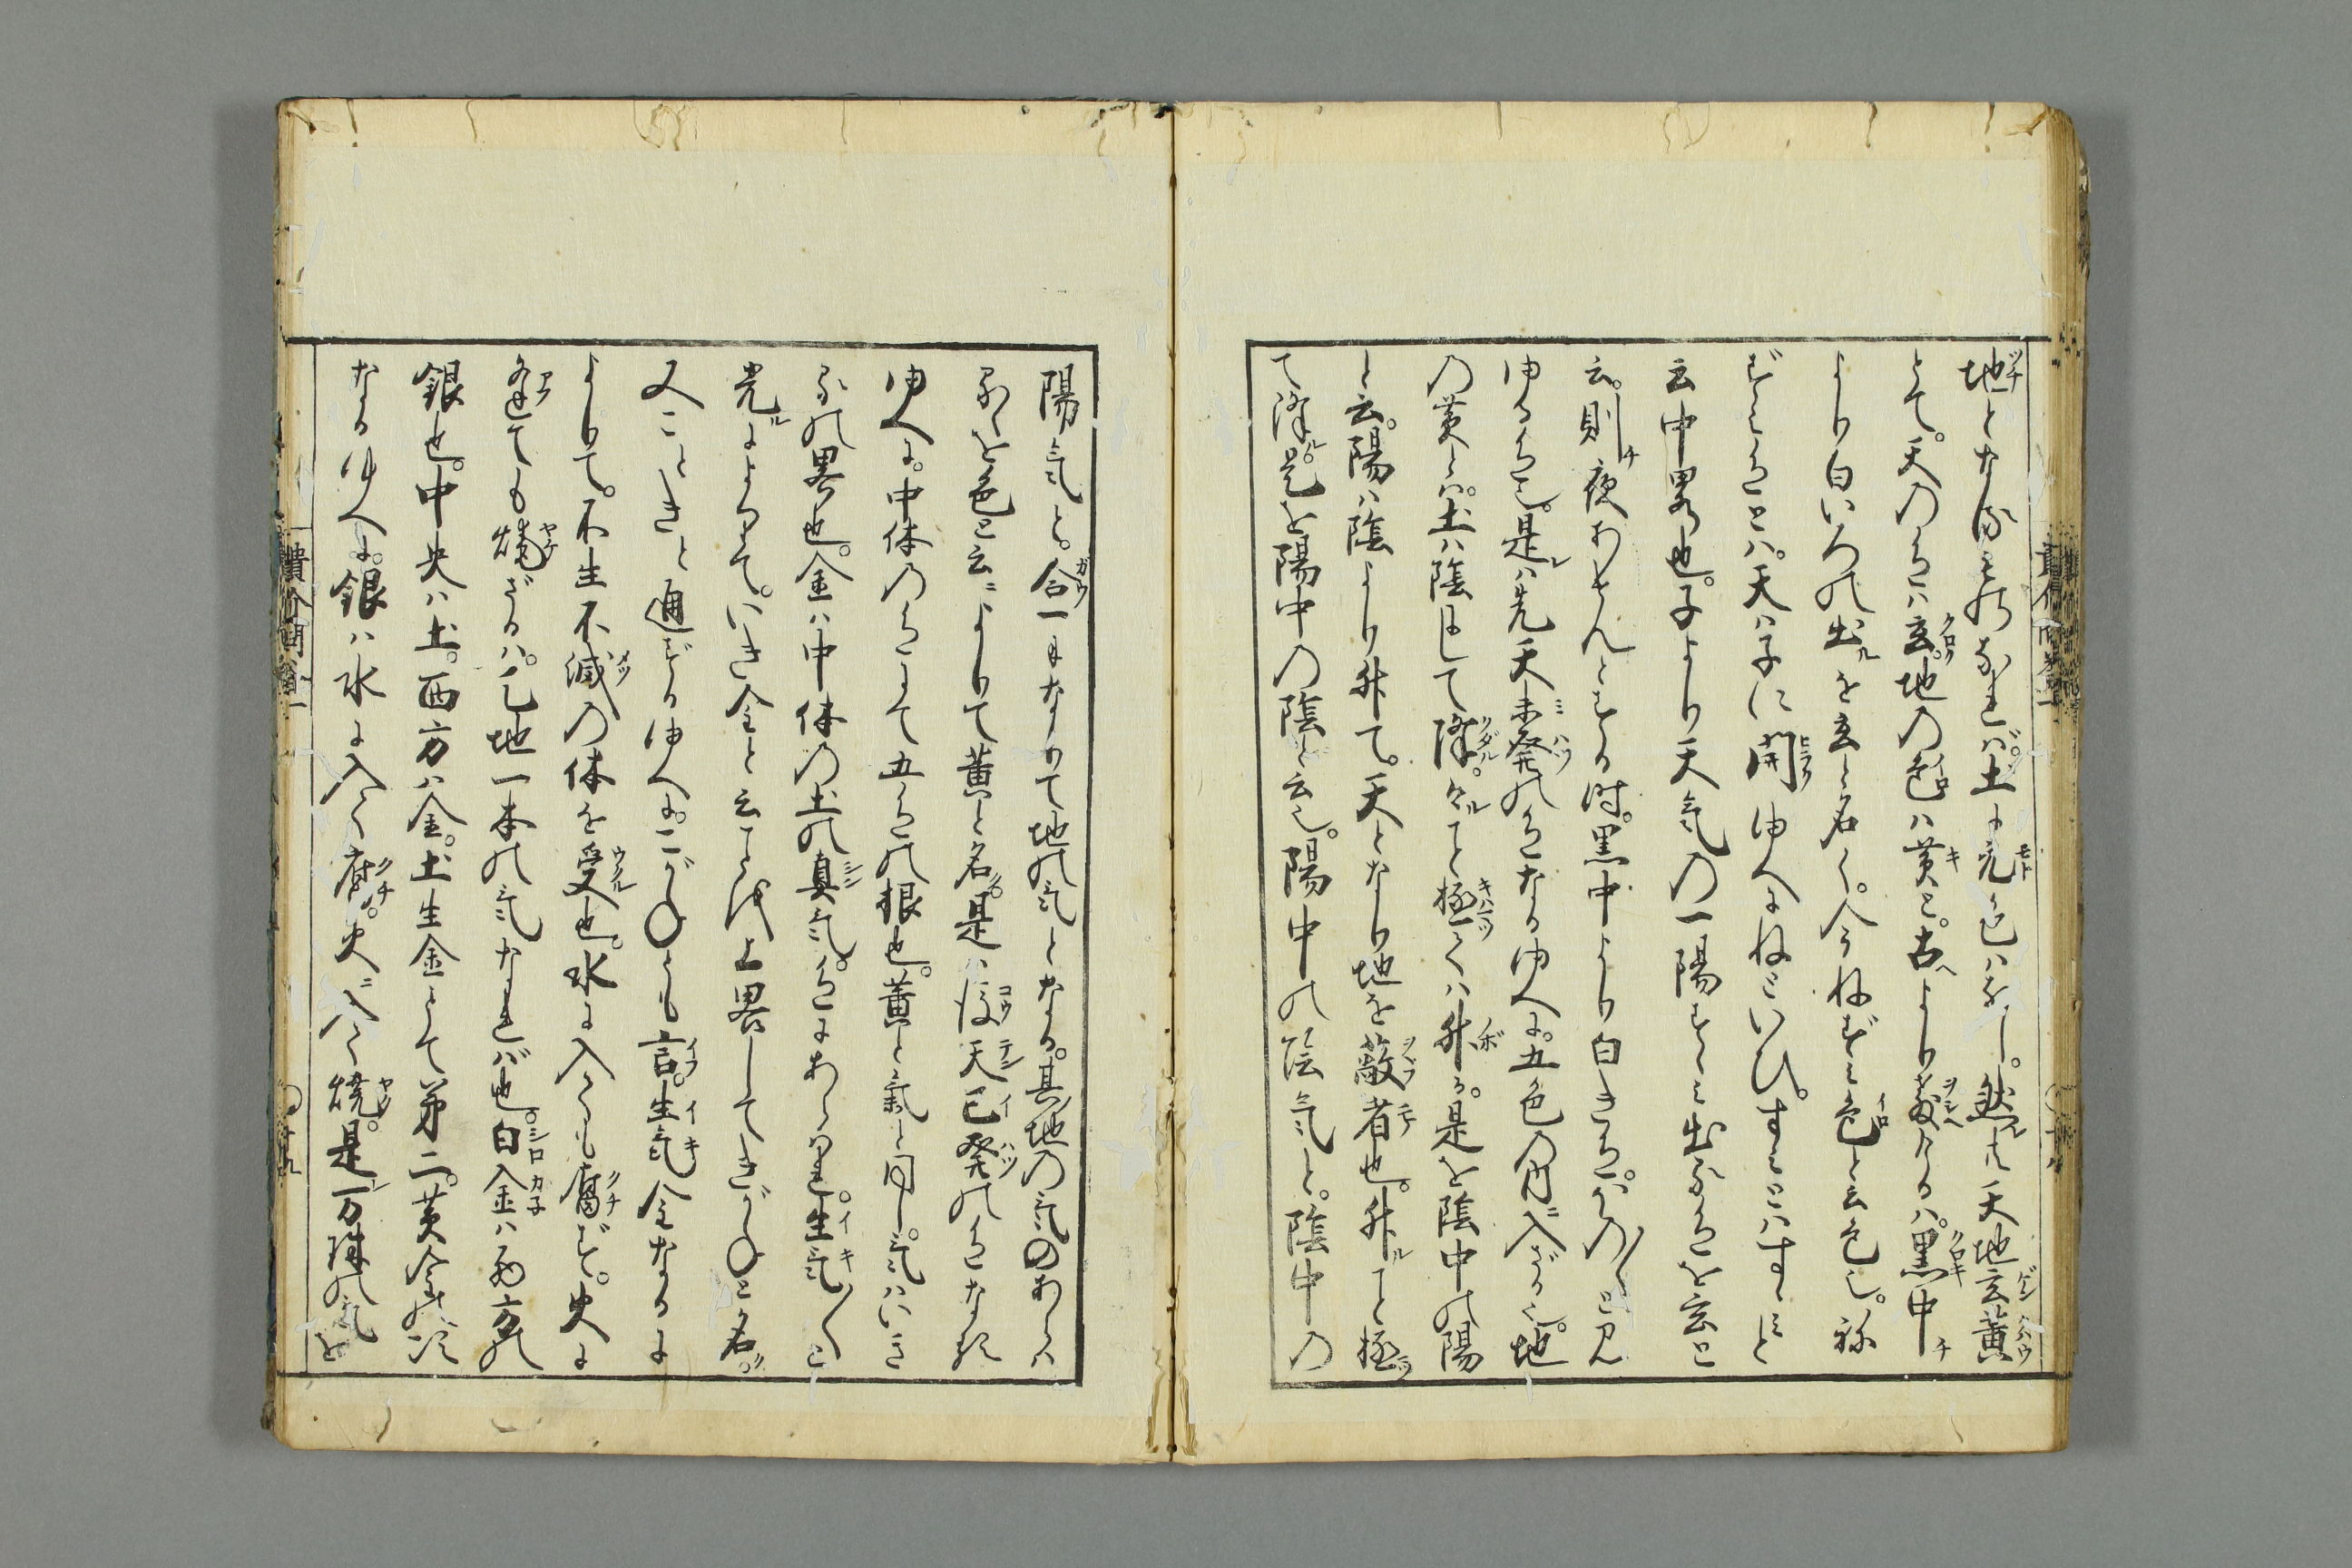 地となるものなれば土に元色はなし。然るに天地玄黄
とて。天の色は玄。地の色は黄と。古へより教ケるは。黒中
より白いろの出ルを玄と名く。今ねずみ色と云色也。
ずみ色とは。天は子に開ゆへにねといひ。すみとはすみと
云中畧也。子より天気の一陽すみ出る色を玄と
云。則夜あけんとする時。黒中より白き色。ほの〳〵と見
ゆる色也。是ハ先天未発の色なるゆへに。五色の内ニ入ざる也。地
の黄とは。土ハ陰にして降。々ルこと極つくハ升る。是を陰中の陽
と云。陽ハ陰より升て。天となり地を敵者也。升ルこと極
て降ル。是を陽中の陰と云也。陽中の陰気と。陰中の
陽気と。合一になりて地の気となる。其地の気のあらハ
るゝを色と云ニよりて黄と名ク。是ハ後天已発の色なる
ゆへに。中体の色にて五色の根也。黄と氣と同し。気ハいき
るの畧也。金ハ中体の土の真気。色にあらハれ。生気〳〵と
光ルによつて。いき金と云ことを上畧してきがねと名ク。
又こときと通ずるゆへに。こがねとも言。生気金なるに
よりて。不生不滅の体を受也。水に入ても腐ず。火に
逢ても焼ざるハ。元地一本の気なれば也。白金ハ西方の
銀也。中央ハ土。西方ハ金。土生金とて第二。黄金の次
なるゆへに。銀ハ水に入て腐。火ニ入て焼。是万殊の気を